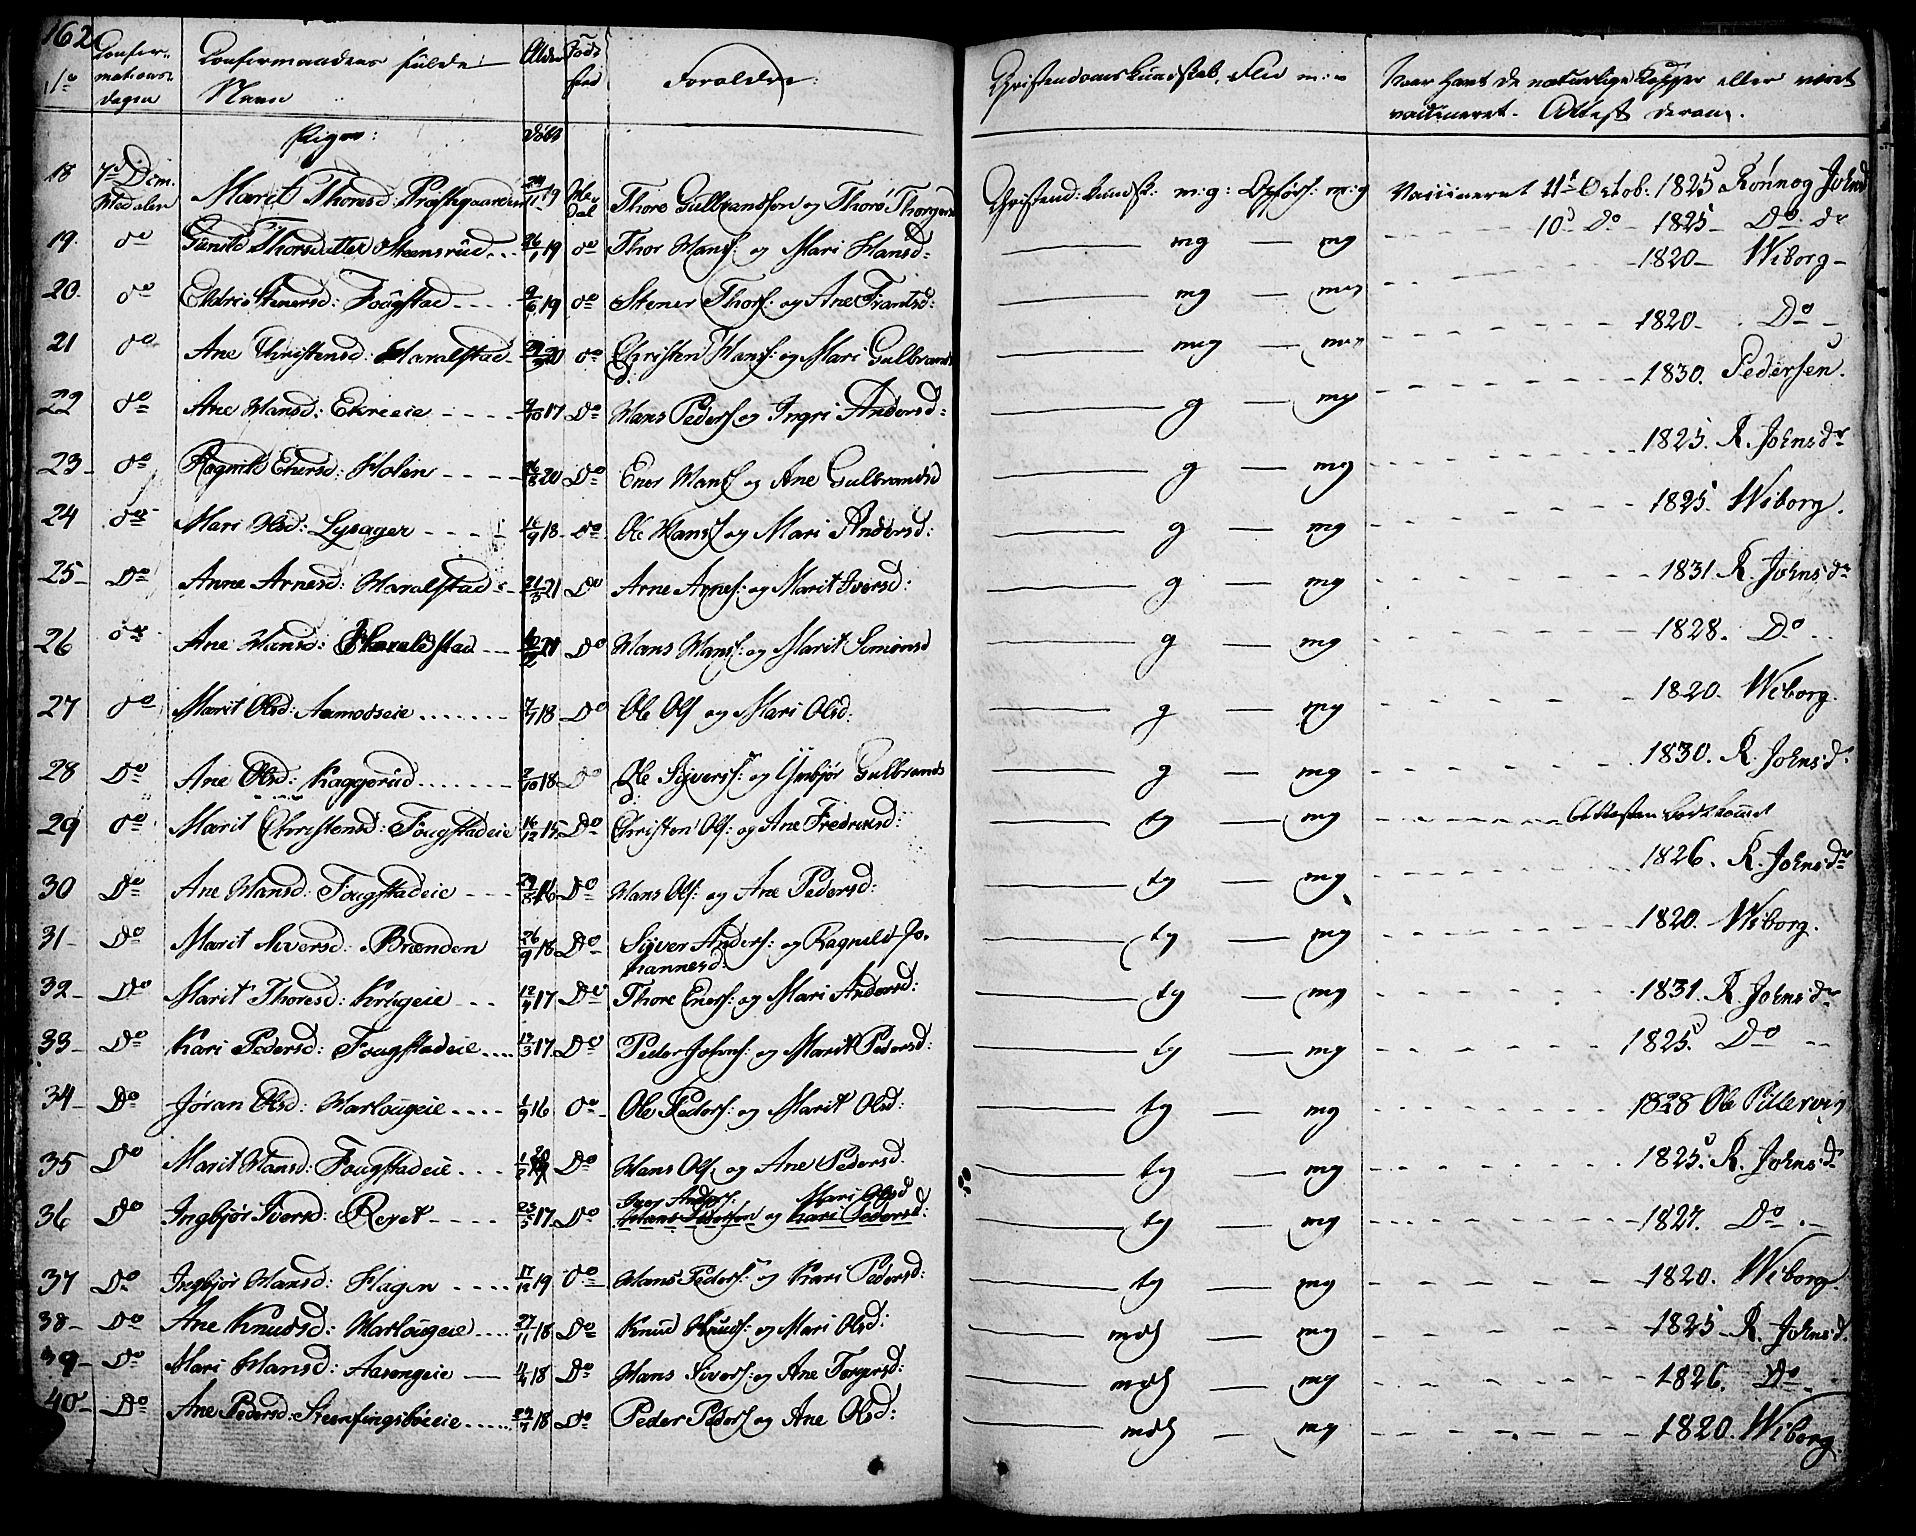 162
No Confir- mations- dagen Confirmandens fulde Navn Alder Føde- sted Forældre: Christendomskundskab, Flid m: v Naar havt de naturlige Kopper eller været vaccineret. Attest derom.
Piger: Født
18 7d Dcm. Medalen Marit Thoresd: Præstgaarden 11 19 Me- dal Thore Gulbrandsen og Thore Christend: Kundsk: m:g: Opførs: m:g Vaccineret 11t Octob: 1825 Rønnog Johnsd
19. do Thorsdatter Steensrud 26/1 19 do Thor Hans: og Mari Hansd: mg mg 10d Do 1825 Do Dr
20. do Stenersd: Fougstad 9/6 19 do Stener Thors: og Ane Frantsd: mg mg 1820 Wiborg
21 do Ane Christensd: Haralstad 20 do Christen Hans: og Mari Gulbrands d: mg mg 1820 Do
22 do Ane Hansd: Ekreeie 17 Do Hans Peders og Ingri Andersd: g mg 1830. Pedersen.
23 do Ragnild Enersd: Holen 20 Do Ener Hans og Ane Gulbrandsd g mg 1825. R. Johnsdr
24 do Mari Olsd: Lysager 16/9 18 do Ole Hans og Mari Andersd: g mg 1825 Wiborg.
25 Do Anne Arnesd: Haralstad 21/5 21 Do Arne Arnes: og Marit Iversd: g mg 1831 R. Johnsdr
26 do Ane Hansd: Haralstad 21 Do Hans Hans: og Marit Simonsd g mg 1828. Do
27 do Marit Olsd: Aamodseie 7/7 18 Do Ole Ols og Mari Olsd: g mg 1820. Wiborg.
28 Do Ane Olsd: Kaggerud 18 Do Ole Syvers: og Ynbjør Gulbrands d: g mg 1830. R. Johnsd:
29 do Marit Christensd: Fougstadeie 16/12 15 Do Christen Ols: og Ane Fredriksd: tg mg Attesten bortkommet
30 Do Ane Hansd: Fougstadeie 16 Do Hans Ols: og Ane Pedersd: tg mg 1826. R. Johnsdr
31 Do Marit Siversd: Brænden 26/9 18 Do Syver Anders: og Ragnild Jo- hannesd: tg mg 1820. Wiborg.
32 Do Marit Thoresd: Krugeie 12/4 17 Do Thore Eners: og Mari Andersd: tg mg 1831. R. Johnsdr
33 Do Kari Pedersd: Fougstadeie 17/3 17 Do Peder Johns: og Marit Pedersd: tg mg 1825. Do
34 Do Jøran Olsd: Harlougeie 1/9 16 do Ole Peders: og Marit Olsd: tg mg 1828 Ole Pillerviq
35 Do Marit Hansd: Fougstadeie 20 Do Hans Ols og Ane Pedersd. tg mg 1825. R. Johnsd:
36 Do Ingbjør Iversd: Røret 23/5 17 Do Iver Anders: Mari Olsd Hans Pedersen og Kari Pedersd: tg mg 1827. Do
37 Do Ingbjør Hansd: Hagen 17/12 19 do Hans Peders: og Kari Pedersd: tg mg 1820. Wiborg
38 Do Ane Knudsd: Harlougeie 27/11 18 Do Knud Knuds: og Mari Olsd: mdl mg 1825 R. Johnsd.
39 Do Mari Hansd: Aasengeie 4/4 18 Do Hans Sivers: og Ane Torgersd: mdl mg 1826. Do
40 Do Ane Pedersd: Steenfingsbøeie 18 Do Peder Peders og Ane Olsd: mdl mg 1820. Wiborg